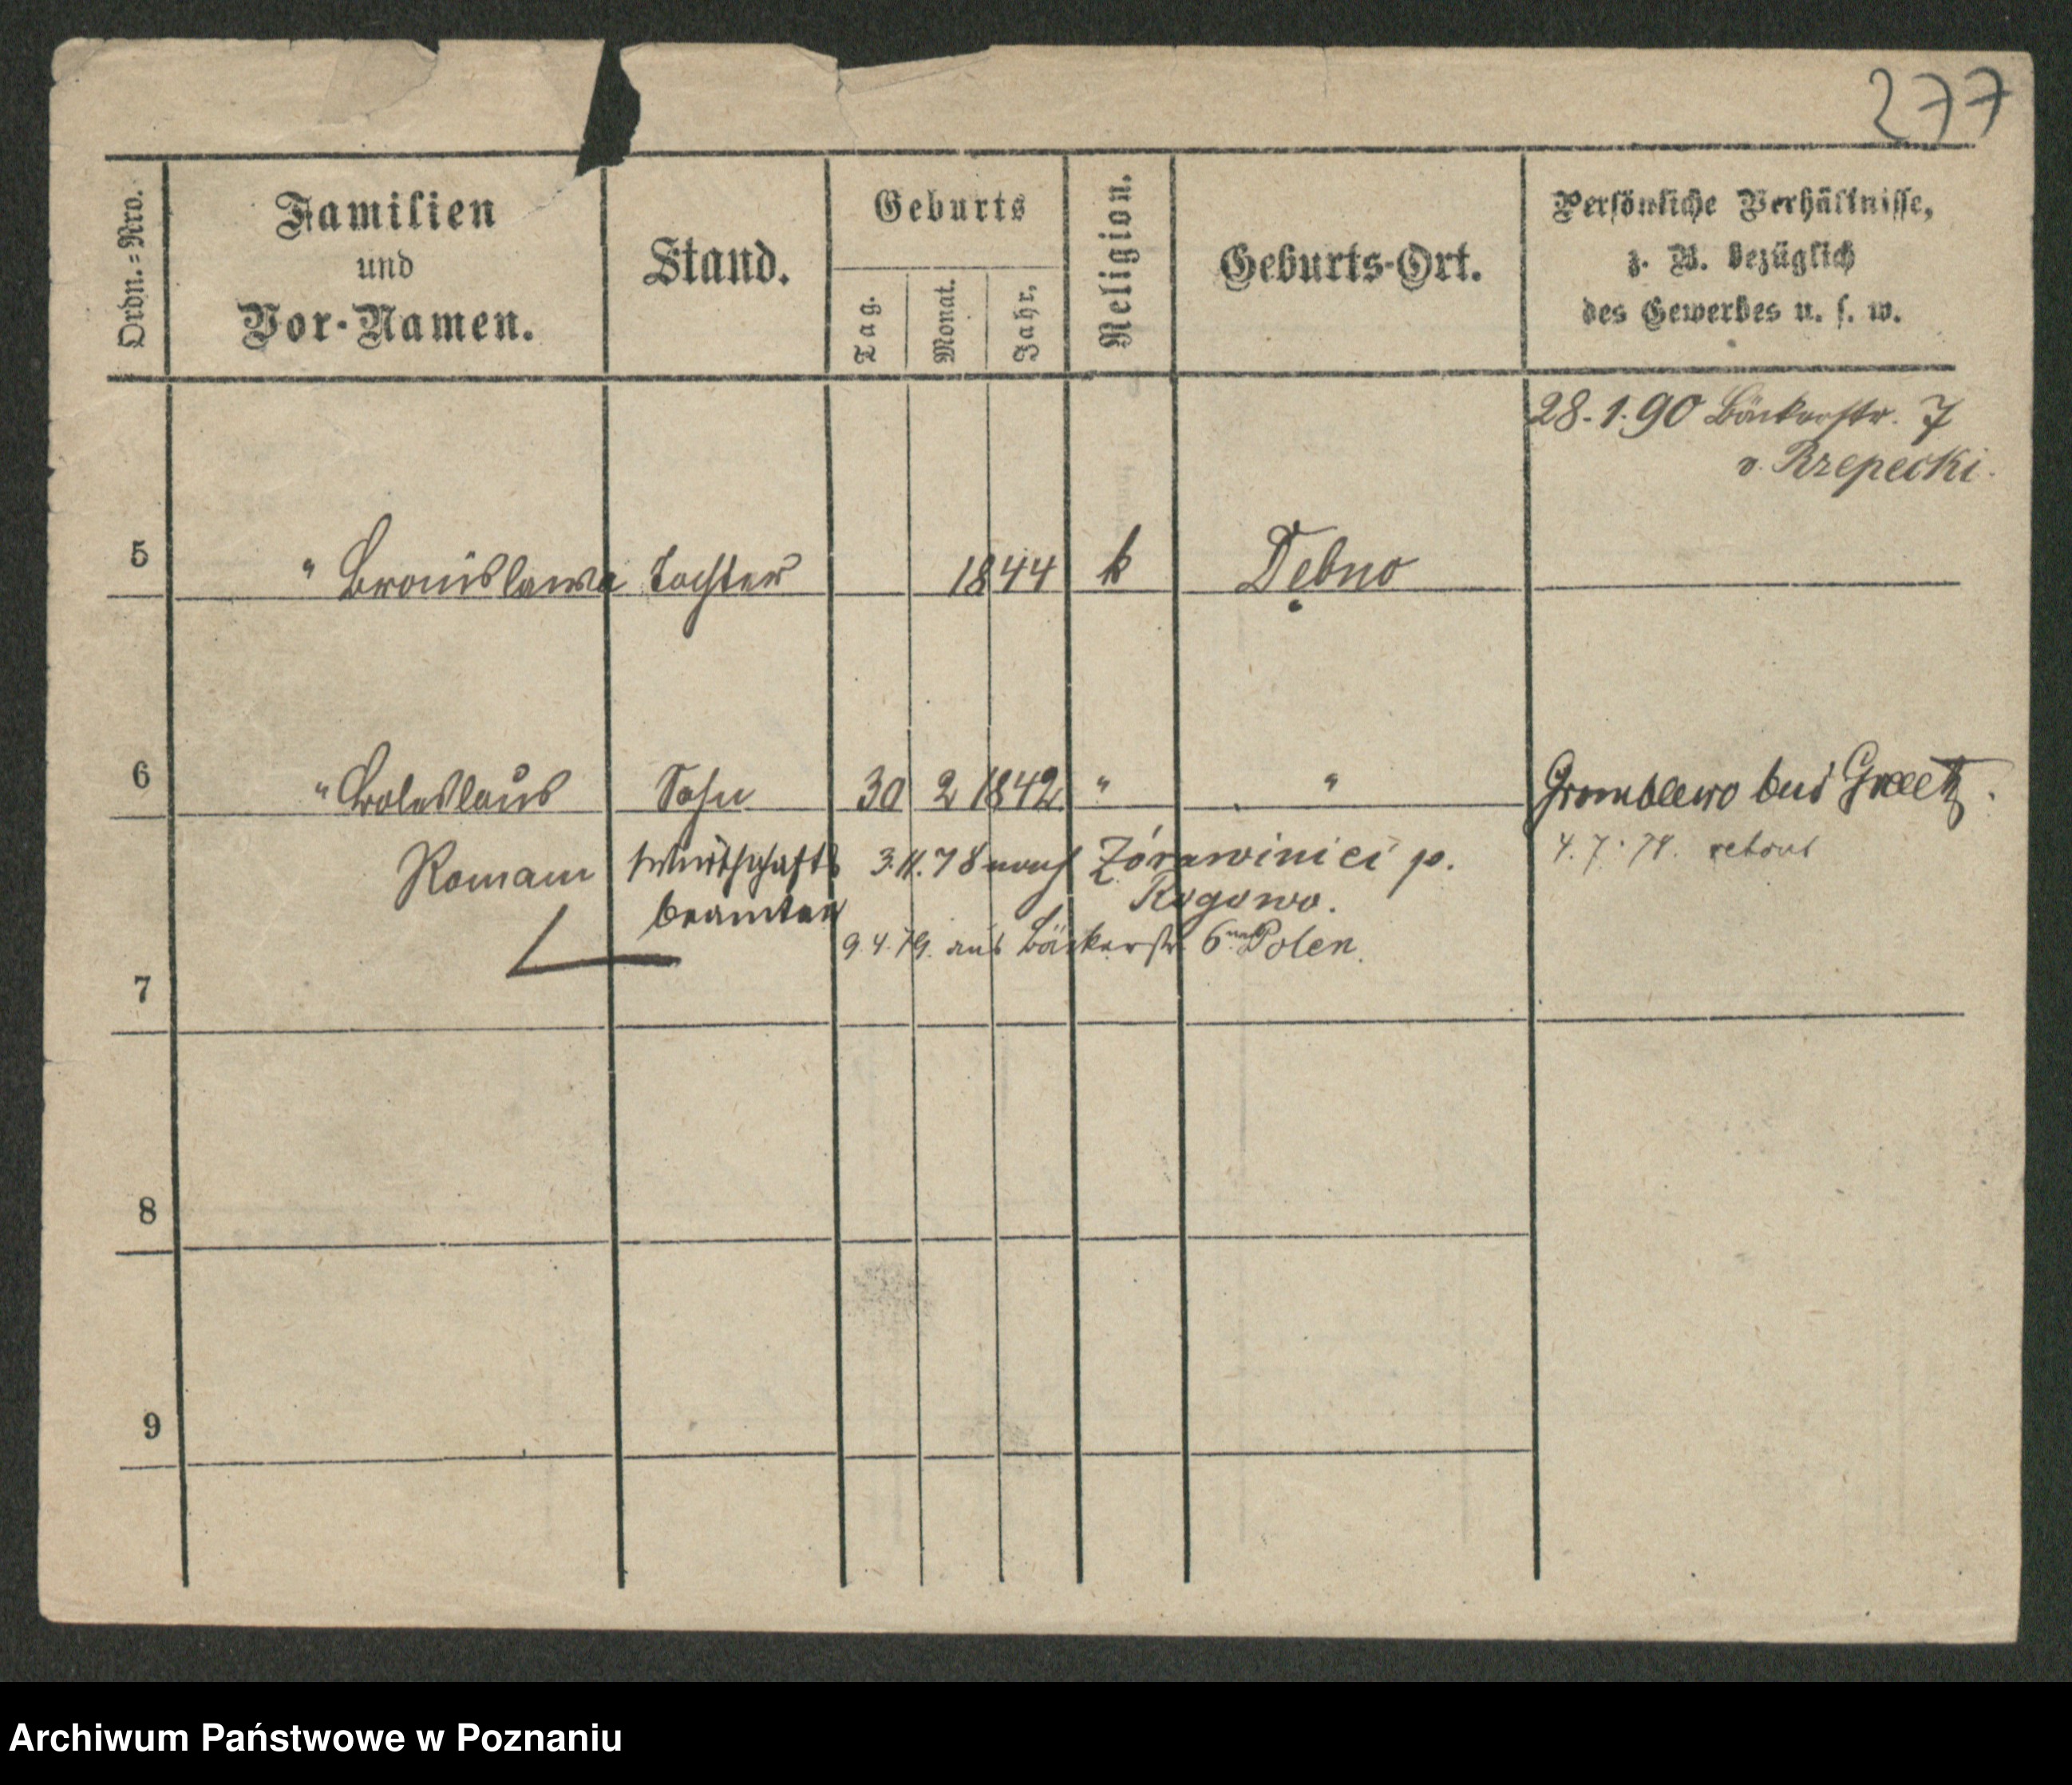 277
Ordn.=Nro.
Familien
und
Vor-Namen.
Stand.
Geburts
Tag.
Monat.
Jahr.
Religion.
Geburts-Ort.
Persönliche Verhältnisse,
z. B. bezüglich
des Gewerbes u. s. w.
28.1.90 Bäckerstr. 7
v. Rzepecki.
5 " Bronislawa Tochter 1844 k Dębno
6 " Boleslaus Sohn 30 2 1842 " " Gromblewo bei Graetz.
Roman Wirthschafts 3.11.78 nach Zórawiniec p. 4.7.79. retour
beamter Rogowo.
9.4.79. aus Bäckerstr. 6 nach Polen.
7
8
9
Archiwum Państwowe w Poznaniu